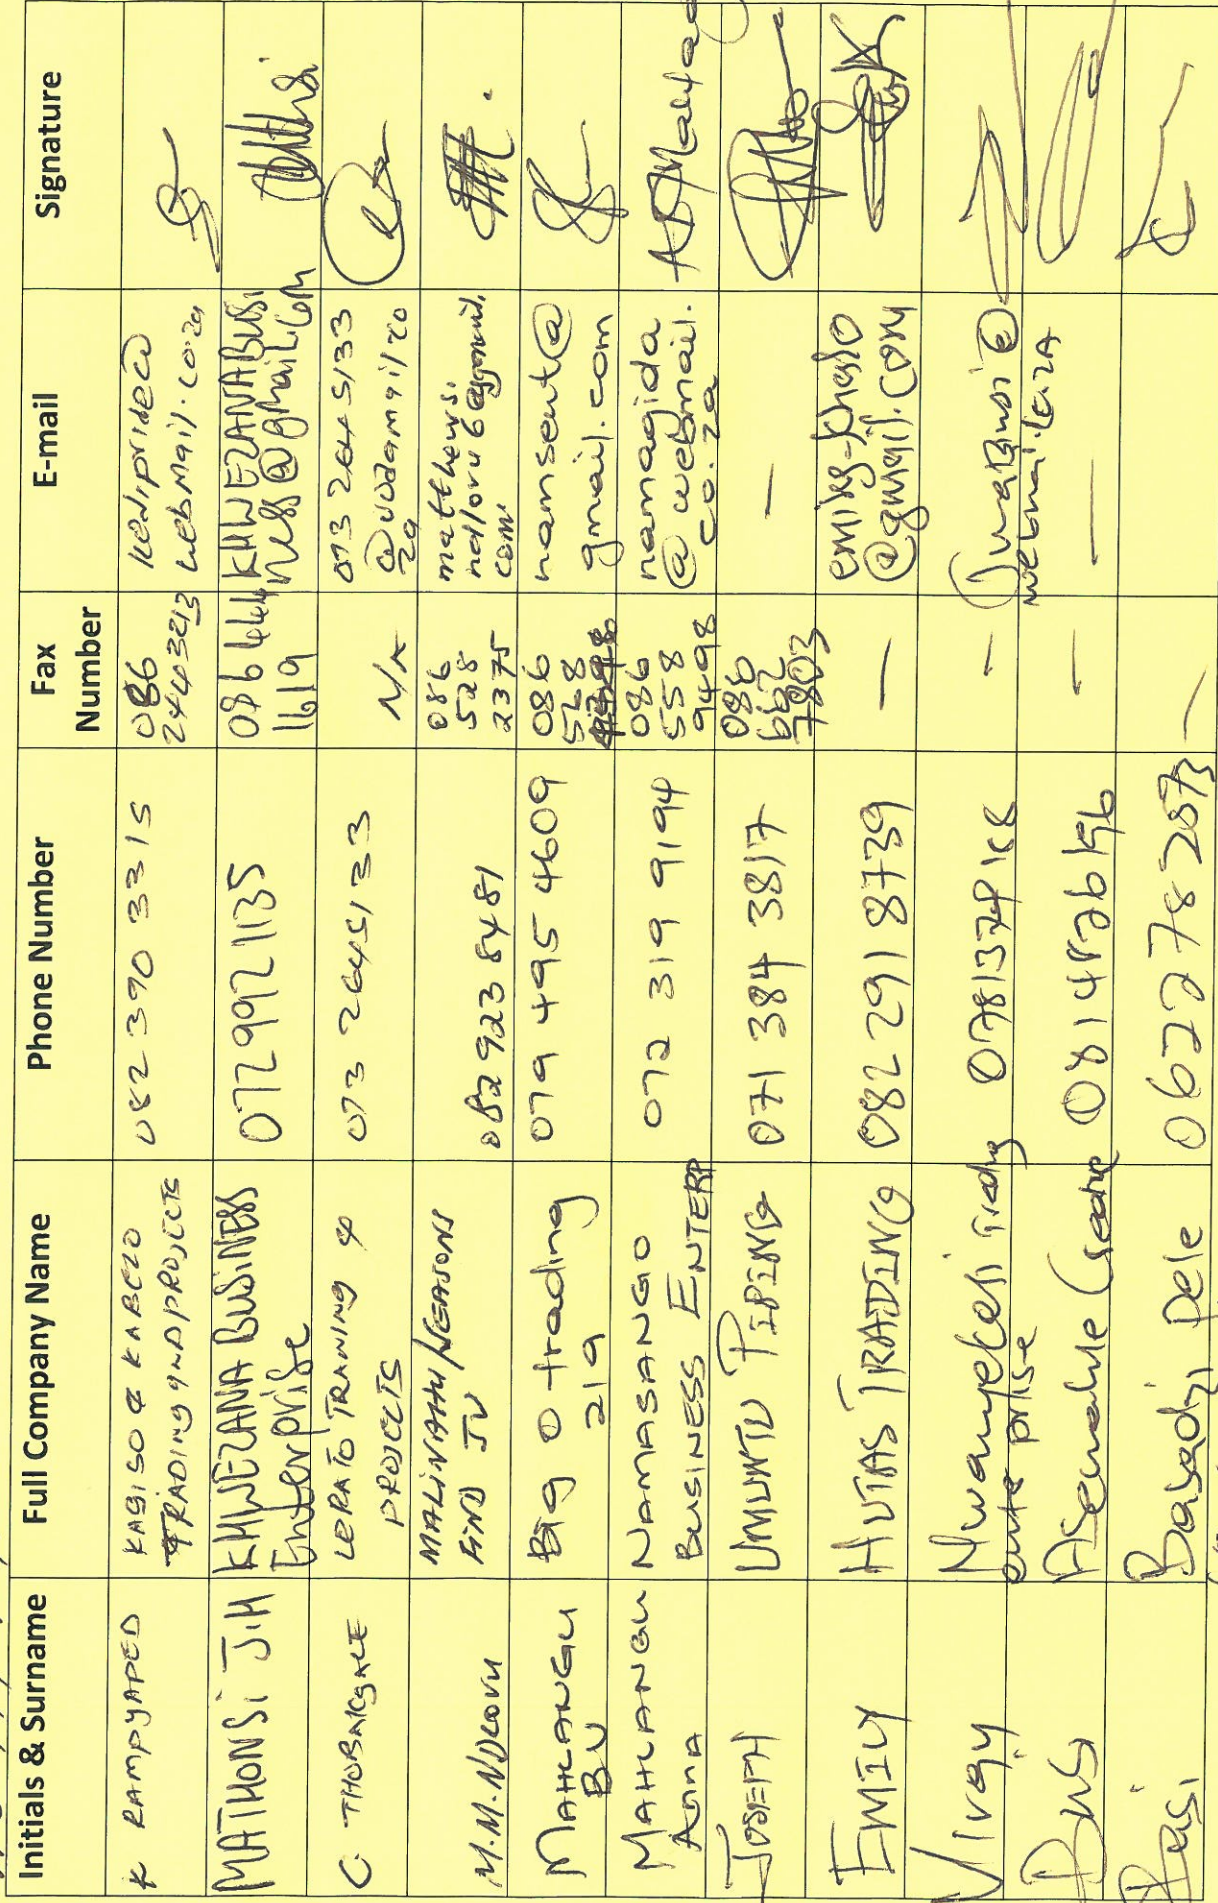 Initials & Surname
Full Company Name
Phone Number
Fax
Number
E-mail
Signature
K RAMPYAPED
KAGISO & KABELO
TRADING AND PROJECTS
082 390 3315
086
2443213
kedipride@
webmail.co.za
MATHONSI J.H
KHWEZANA BUSINESS
Enterprise
0729921135
086 444
1619
KHWEZANABUSI
NESS@gmail.com
C THOBAKGALE
LERATO TRAINING &
PROJECTS
073 2645133
N/A
073 264 5133
@vodamail.co
za
M.M. NDLOVU
MALINAHU/NEASONS
FIND JV
082 923 8481
086
528
2375
matthews.
ndlovu6@gmail.
com
MAHLANGU
BN
Big O trading
219
079 495 4609
086
568
namsent@
gmail.com
MAHLANGU
Anna
NAMASANGO
BUSINESS ENTERP
072 319 9194
086
558
9498
namagida
@webmail.
co.za
JOSEPH
UMUNTU PIPING
071 384 3817
086
662
7803
—
EMILY
HUTAS TRADING
082 291 8739
—
@gmail.com
Virgy
Nwanyeketi trading
ente prise
—
webmail.co.za
—
—
Basadzi pele
062278 2873
—